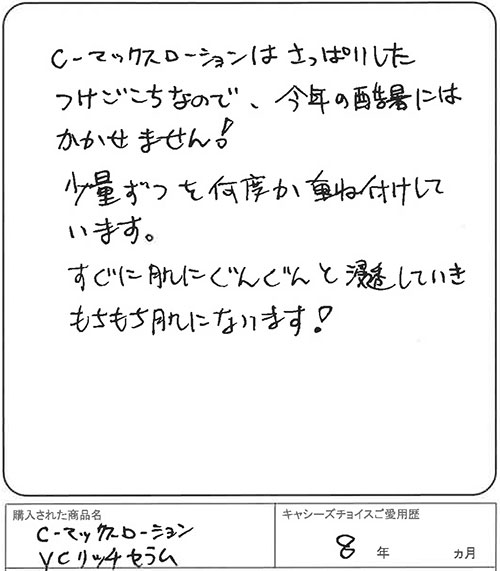 C-マックスローションは さっぱりした
つけごこちなので、今年の酷暑には
かかせません!
少量ずつを何度か重ね付けして
います。
すぐに肌にぐんぐんと浸透していき
もちもち肌になります!
購入された商品名
C-マックスローション
VCリッチセラム
キャシーズチョイスご愛用歴
8 年 ヵ月